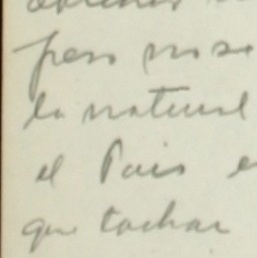 pero no se
la natural
el Pais e
que tachar